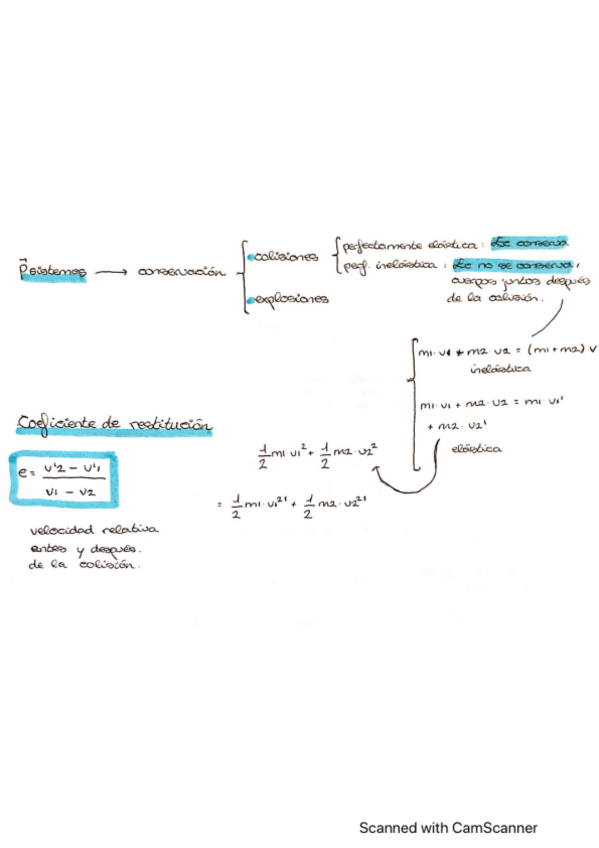 p⃗ sistemas → conservación
colisiones
perfectamente elástica: Ec conserva
perf. inelástica: Ec no se conserva,
cuerpos juntos después
de la colisión.
explosiones
m1·v1 + m2·v2 = (m1+m2) v
inelástica
m1·v1 + m2·v2 = m1·v1'
+ m2·v2'
elástica
1/2 m1·v1² + 1/2 m2·v2²
= 1/2 m1·v1²' + 1/2 m2·v2²'
Coeficiente de restitución
e = (v'2 - v'1) / (v1 - v2)
velocidad relativa
antes y después.
de la colisión.
Scanned with CamScanner